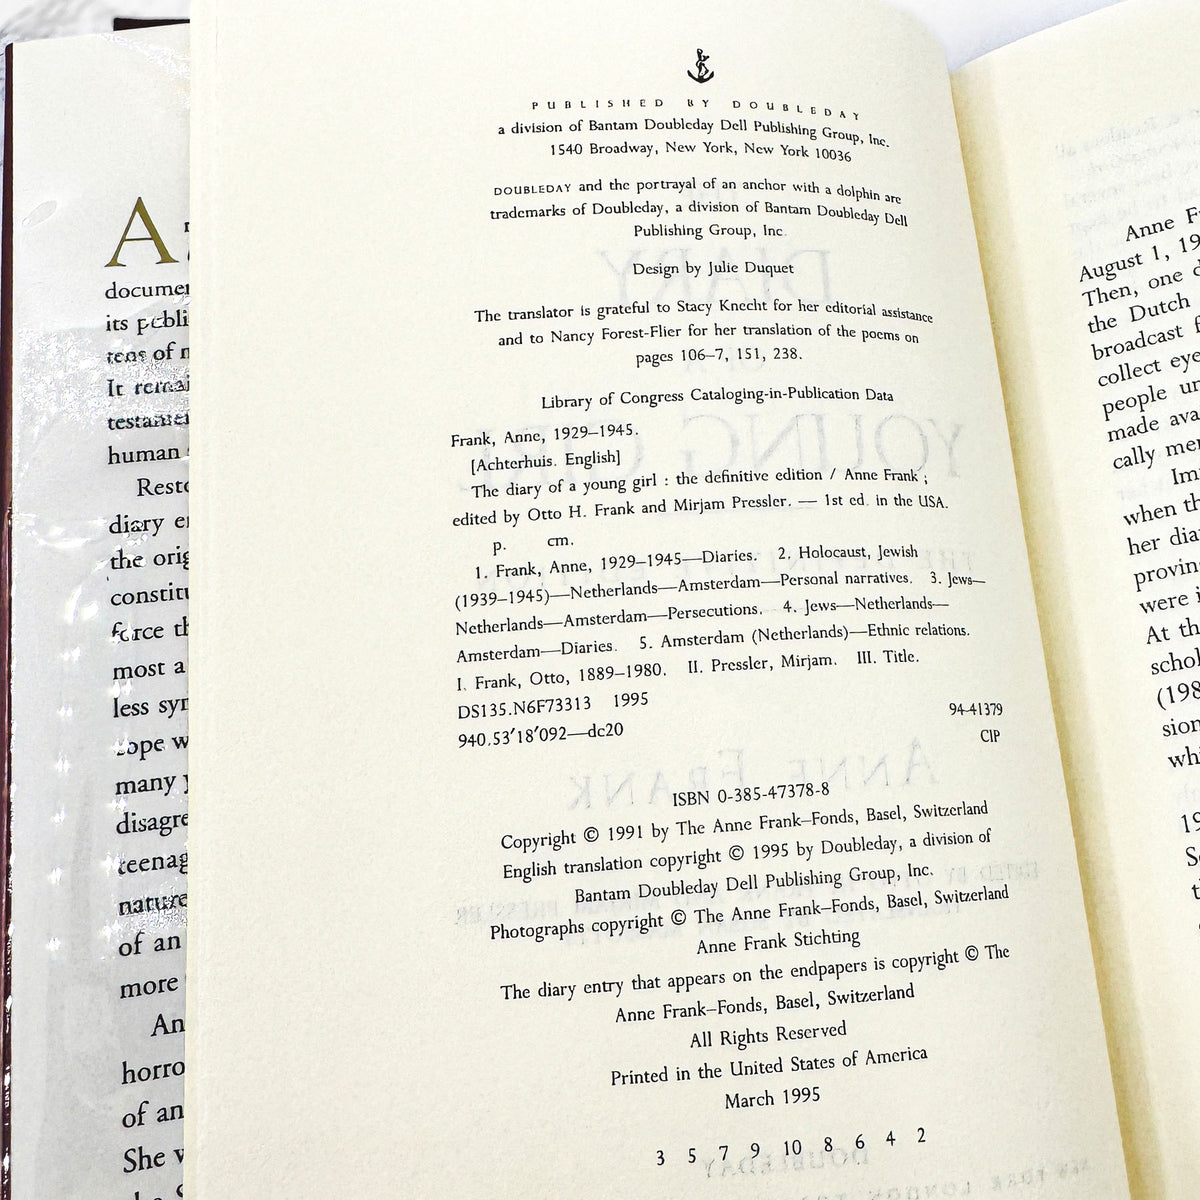 A
documen
its publi
tens of m
It remai
testamen
human
Resto
diary en
the orig
constitu
force th
most a
less sym
many y
disagre
teenag
nature
of an
more
An
horro
of an
She w
PUBLISHED BY DOUBLEDAY
a division of Bantam Doubleday Dell Publishing Group, Inc.
1540 Broadway, New York, New York 10036
DOUBLEDAY and the portrayal of an anchor with a dolphin are
trademarks of Doubleday, a division of Bantam Doubleday Dell
Publishing Group, Inc.
Design by Julie Duquet
The translator is grateful to Stacy Knecht for her editorial assistance
and to Nancy Forest-Flier for her translation of the poems on
pages 106–7, 151, 238.
Library of Congress Cataloging-in-Publication Data
Frank, Anne, 1929–1945.
[Achterhuis. English]
The diary of a young girl : the definitive edition / Anne Frank ;
edited by Otto H. Frank and Mirjam Pressler. — 1st ed. in the USA.
p. cm.
1. Frank, Anne, 1929–1945—Diaries. 2. Holocaust, Jewish
(1939–1945)—Netherlands—Amsterdam—Personal narratives. 3. Jews—
Netherlands—Amsterdam—Persecutions. 4. Jews—Netherlands—
Amsterdam—Diaries. 5. Amsterdam (Netherlands)—Ethnic relations.
I. Frank, Otto, 1889–1980. II. Pressler, Mirjam. III. Title.
DS135.N6F73313 1995
940.53′18′092—dc20
94-41379
CIP
ISBN 0-385-47378-8
Copyright © 1991 by The Anne Frank–Fonds, Basel, Switzerland
English translation copyright © 1995 by Doubleday, a division of
Bantam Doubleday Dell Publishing Group, Inc.
Photographs copyright © The Anne Frank–Fonds, Basel, Switzerland
Anne Frank Stichting
The diary entry that appears on the endpapers is copyright © The
Anne Frank–Fonds, Basel, Switzerland
All Rights Reserved
Printed in the United States of America
March 1995
3 5 7 9 10 8 6 4 2
Anne F
August 1, 19
Then, one d
the Dutch
broadcast f
collect eye
people un
made ava
cally mer
Im
when th
her dia
provin
were i
At th
schol
(198
sion
whi
19
S
t